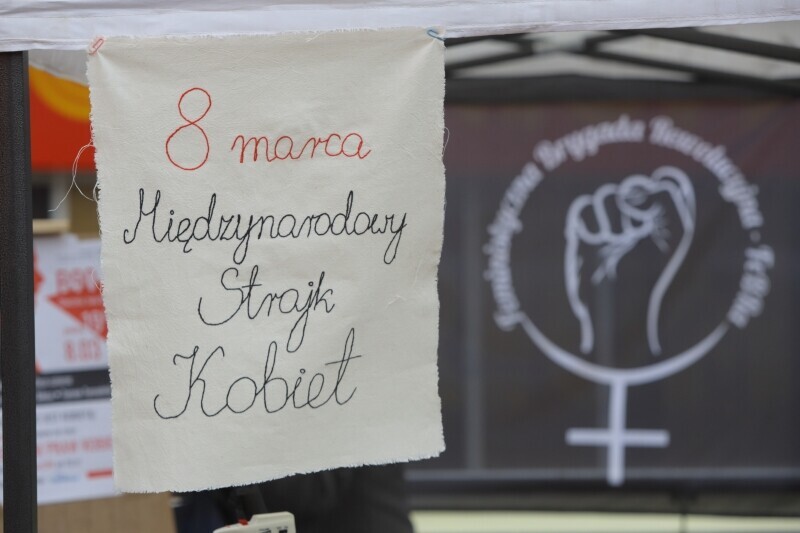 8 marca
Międzynarodowy
Strajk
Kobiet
Feministyczna Brygada Rewolucyjna - FeBRa
8.03